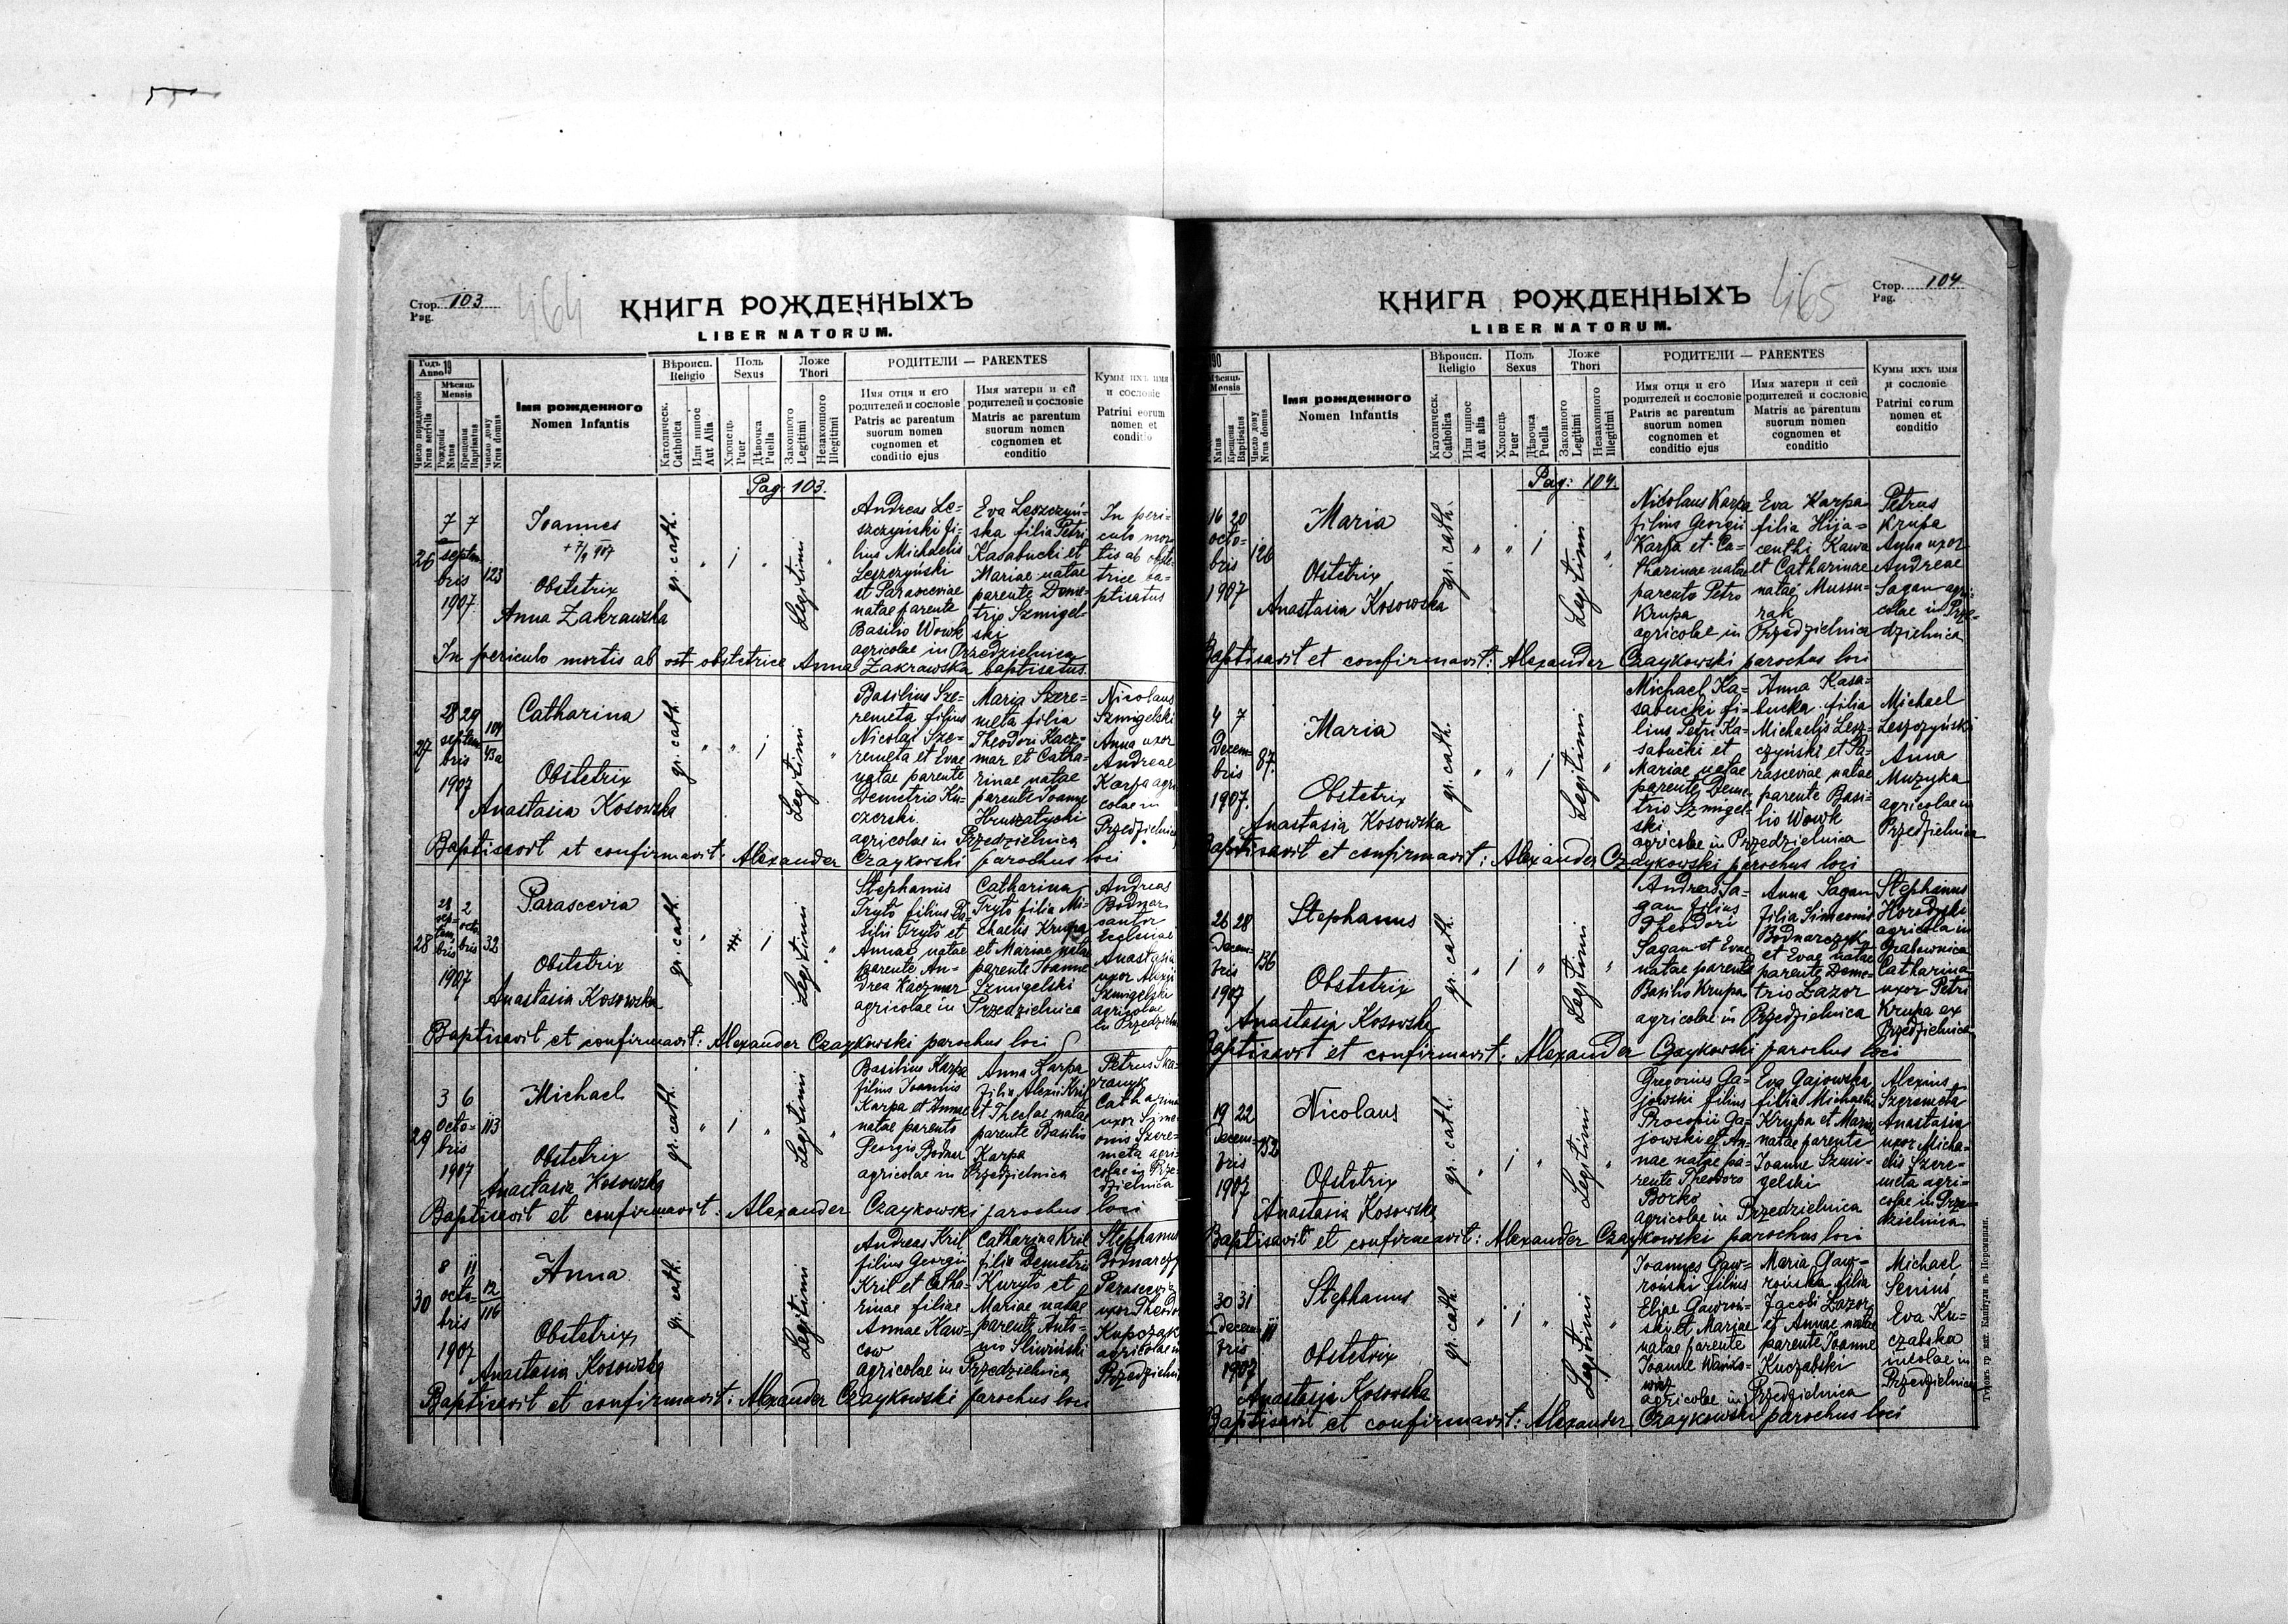 Стор. 103
Pag.
464
КНИГА РОЖДЕННЫХЪ
LIBER NATORUM.
Годъ 19
Anno
Мѣсяць
Mensis
Число порядочное
Nrus serialis
Рожденія
Natus
Крещенія
Baptisatus
Число дому
Nrus domus
Імя рожденного
Nomen Infantis
Вѣроисп.
Religio
Католическ.
Catholica
Или инное
Aut Alia
Поль
Sexus
Хлопець
Puer
Дѣвочка
Puella
Ложе
Thori
Законного
Legitimi
Незаконного
Illegitimi
РОДИТЕЛИ — PARENTES
Имя отця и его
родителей и сословіе
Patris ac parentum
suorum nomen
cognomen et
conditio ejus
Имя матери и ей
родителей и сословіе
Matris ac parentum
suorum nomen
cognomen et
conditio
Кумы ихъ имя
и сословіе
Patrini eorum
nomen et
conditio
Pag. 103.
26
7 7
septem-
bris
1907
123
Joannes
+ 7/9 907
Obstetrix
Anna Zakrawska
gr. cath.
" 1 "
Legitimi
"
Andreas Le-
szczyński fi-
lius Michaelis
Leszczyński
et Parasceviae
natae parente
Basilio Wowk
Eva Leszczyń-
ska filia Petri
Kasabucki et
Mariae natae
parente Deme-
trio Szmigel-
ski
agricolae in Przedzielnica
In peri-
culo mor-
tis ab obste-
trice ba-
ptisatus
In periculo mortis ab ost obstetrice Anna Zakrawska baptisatus.
27
28 29
septem-
bris
1907
104
43a
Catharina
Obstetrix
Anastasia Kosowska
gr. cath.
" " 1
Legitimi
"
Basilius Sze-
remeta filius
Nicolai Sze-
remeta et Evae
natae parente
Demetrio Ku-
czerski
Maria Szere-
meta filia
Theodori Kacz-
mar et Catha-
rinae natae
parente Joanne
Hruszatycki
agricolae in Przedzielnica
Nicolaus
Szmigelski
Anna uxor
Andreae
Karpa agri-
colae in
Przedzielnica
Baptisavit et confirmavit: Alexander Czaykowski parochus loci
28
28 2
sep- octo-
tem- bris
bris
1907
32
Parascevia
Obstetrix
Anastasia Kosowska
gr. cath.
" 1
Legitimi
"
Stephanus
Tryto filius Ba-
silii Tryto et
Annae natae
parente An-
drea Kaczmar
Catharina
Tryto filia Mi-
chaelis Krupa
et Mariae natae
parente Joanne
Szmigelski
agricolae in Przedzielnica
Andreas
Bodnar
cantor
ecclesiae
Anastasia
uxor Alexii
Szmigelski
agricolae
in Przedzielnica
Baptisavit et confirmavit: Alexander Czaykowski parochus loci
29
3 6
octo-
bris
1907
113
Michael
Obstetrix
Anastasia Kosowska
gr. cath.
" 1 "
Legitimi
"
Basilius Karpa
filius Joannis
Karpa et Annae
natae parente
Georgio Bodnar
Anna Karpa
filia Alexii Kril
et Theclae natae
parente Basilio
Karpa
agricolae in Przedzielnica
Petrus Ska-
Catharina
uxor Sime-
onis Szere-
meta agri-
colae in Prze-
dzielnica
Baptisavit et confirmavit: Alexander Czaykowski parochus loci
30
8 11
octo-
bris
1907
12
116
Anna
Obstetrix
Anastasia Kosowska
gr. cath.
Legitimi
Andreas Kril
filius Georgii
Kril et Catha-
rinae filiae
Annae Kaw-
cow
Catharina Kril
filia Demetrii
Kuryto et
Mariae natae
parente Anto-
nio Sliwinski
agricolae in Przedzielnica
Stephanus
Parascevia
uxor Theodo
Kupczak
agricolae in
Przedzielni
Baptisavit et confirmavit: Alexander Czaykowski parochus loci
Стор. 104
Pag.
465
КНИГА РОЖДЕННЫХЪ
LIBER NATORUM.
190
Мѣсяць
Mensis
Natus
Крещенія
Baptisatus
Число дому
Nrus domus
Імя рожденного
Nomen Infantis
Вѣроисп.
Religio
Католическ.
Catholica
Или инное
Aut alia
Поль
Sexus
Хлопець
Puer
Дѣвочка
Puella
Ложе
Thori
Законного
Legitimi
Незаконного
Illegitimi
РОДИТЕЛИ — PARENTES
Имя отця и его
родителей и сословіе
Patris ac parentum
suorum nomen
cognomen et
conditio ejus
Имя матери и сей
родителей и сословіе
Matris ac parentum
suorum nomen
cognomen et
conditio
Кумы ихъ имя
и сословіе
Patrini eorum
nomen et
conditio
Pag: 104.
16 20
octo-
bris
1907
126
Maria
Obstetrix
Anastasia Kosowska
gr. cath.
" " 1
Legitimi
"
Nicolaus Karpa
filius Georgii
Karpa et Ca-
tharinae natae
parente Petro
Krupa
Eva Karpa
filia Hija-
centhi Kawa
et Catharinae
natae Mussu-
rak
agricolae in Przedzielnica
Petrus
Krupa
Anna uxor
Andreae
Sagan agri-
colae in Prze-
dzielnica
Baptisavit et confirmavit: Alexander Czaykowski parochus loci
4 7
Decem-
bris
1907.
87.
Maria
Obstetrix
Anastasia Kosowska
gr. cath.
" " 1
Legitimi
"
Michael Ka-
sabucki fi-
lius Petri Ka-
sabucki et
Mariae natae
parente Deme-
trio Szmigel-
ski
Anna Kasa-
bucka filia
Michaelis Lesz-
czyński et Pa-
rasceviae natae
parente Basi-
lio Wowk
agricolae in Przedzielnica
Michael
Leszczyński
Anna
Muzyka
agricolae in
Przedzielnica
Baptisavit et confirmavit: Alexander Czaykowski parochus loci
26 28
Decem-
bris
1907
136
Stephanus
Obstetrix
Anastasia Kosowska
gr. cath.
" 1 "
Legitimi
"
Andreas Sa-
gan filius
Theodori
Sagan et Evae
natae parente
Basilio Krupa
Anna Sagan
filia Simeonis
Bodnarczyk
et Evae natae
parente Deme-
trio Lazor
agricolae in Przedzielnica
Stephanus
Horodyski
agricola in
Grabownica
Catharina
uxor Petri
Krupa ex
Przedzielnica
Baptisavit et confirmavit: Alexander Czaykowski parochus loci
19 22
Decem-
bris
1907
152
Nicolaus
Obstetrix
Anastasia Kosowska
gr. cath.
" 1 "
Legitimi
"
Gregorius Ga-
jowski filius
Procopii Ga-
jowski et An-
nae natae pa-
rente Theodoro
Borko
Eva Gajowska
filia Michaelis
Krupa et Mariae
natae parente
Joanne Szmi-
gelski
agricolae in Przedzielnica
Alexius
Szeremeta
Anastasia
uxor Micha-
elis Szere-
meta agri-
colae in Prze-
dzielnica
Baptisavit et confirmavit: Alexander Czaykowski parochus loci
30 31
Decem-
bris
1907
111
Stephanus
Obstetrix
Anastasia Kosowska
gr. cath
" 1 "
Legitimi
"
Joannes Gaw-
roński filius
Eliae Gawroń-
ski et Mariae
natae parente
Joanne
Maria Gaw-
rońska filia
Jacobi Lazor
et Annae natae
parente Joanne
Kuczabski
agricolae in Przedzielnica
Michael
Seniuś
Eva Ku-
czabska
incolae in
Przedzielnica
Baptisavit et confirmavit: Alexander Czaykowski parochus loci